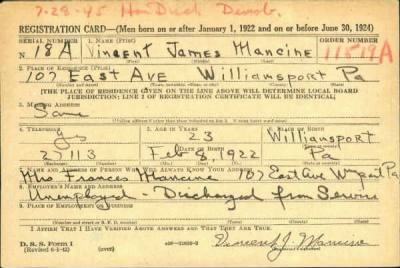 7-28-45 Hon Disch Demob.
REGISTRATION CARD—(Men born on or after January 1, 1922 and on or before June 30, 1924)
SERIAL NUMBER 1. NAME (Print) ORDER NUMBER
N 18A Vincent James Mancine 11519A
2. PLACE OF RESIDENCE (Print)
107 East Ave Williamsport Pa
[THE PLACE OF RESIDENCE GIVEN ON THE LINE ABOVE WILL DETERMINE LOCAL BOARD
JURISDICTION; LINE 2 OF REGISTRATION CERTIFICATE WILL BE IDENTICAL]
3. MAILING ADDRESS
Same
4. TELEPHONE 5. AGE IN YEARS 6. PLACE OF BIRTH
yes 23 Williamsport
DATE OF BIRTH
2 113 Feb 8, 1922 Pa
7. NAME AND ADDRESS OF PERSON WHO WILL ALWAYS KNOW YOUR ADDRESS
Mrs Frances Mancine 107 East Ave Wmspt Pa
8. EMPLOYER'S NAME AND ADDRESS
Unemployed - Discharged from Service
9. PLACE OF EMPLOYMENT OR BUSINESS
I AFFIRM THAT I HAVE VERIFIED ABOVE ANSWERS AND THAT THEY ARE TRUE.
D. S. S. Form 1 Vincent J. Mancine
(Revised 6-5-42) (over)